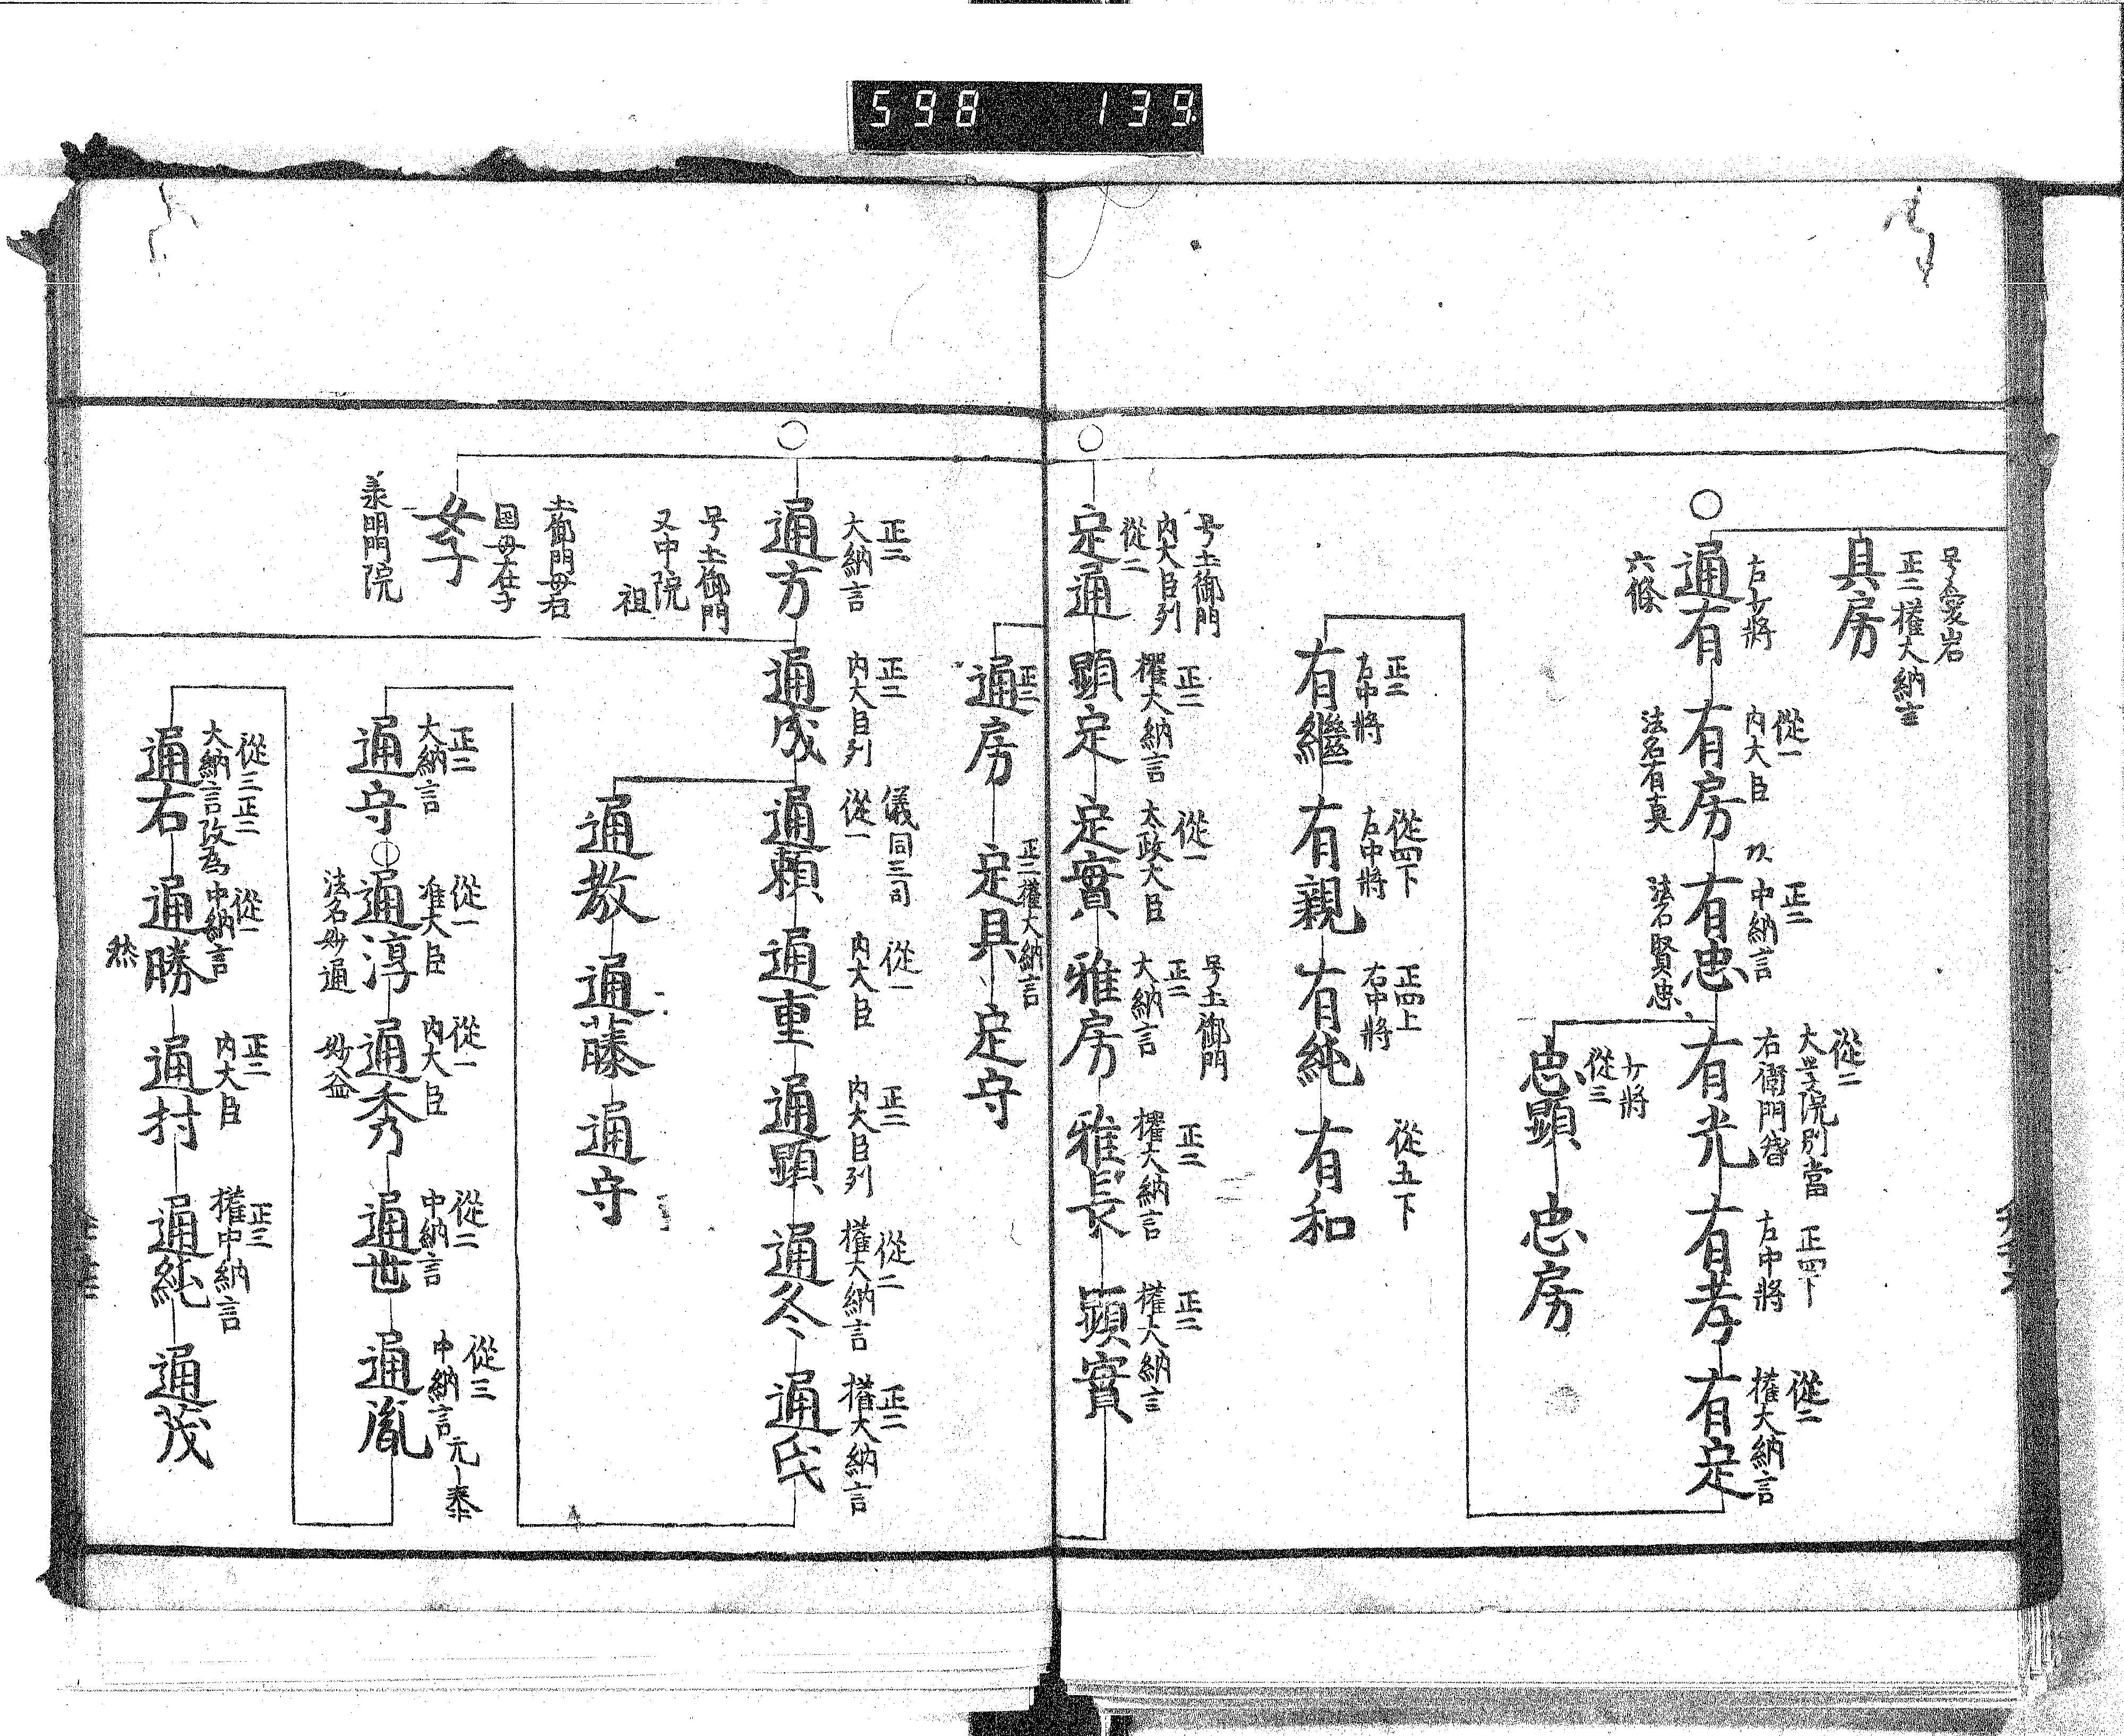 598 139
号愛岩
正二 權大納言
具房
右少將
通有
六條
從一
内大臣
有房
法名有真
正二
中納言
有忠
法名賢忠
從二
大学院別當
右衛門督
有光
正四下
左中將
有孝
從二
權大納言
有定
少將
從三
忠顯
忠房
正二
左中將
有繼
從四下
左中將
有親
正四上
右中將
有純
從五下
有和
号土御門
内大臣列
從二
定通
正二
權大納言
顯定
從一
太政大臣
定實
号土御門
正二
大納言
雅房
正二
權大納言
雅長
正二
權大納言
顯實
正二
通房
正二權大納言
定具
定守
正二
大納言
通方
号土御門
又中院
祖
正二
内大臣列
通成
儀同三司
從一
通頼
從一
内大臣
通重
正二
内大臣列
通顯
從二
權大納言
通冬
正二
權大納言
通氏
通教
通藤
通守
土御門母右
国母在子
女子
承明門院
正二
大納言
通守
從一
准大臣
通淳
法名妙通
從一
内大臣
通秀
妙益
從二
中納言
通世
從三
中納言
元泰
通胤
從三正二
大納言改為
通右
從一
中納言
通勝
然
正二
内大臣
通村
正三
權中納言
通純
通茂